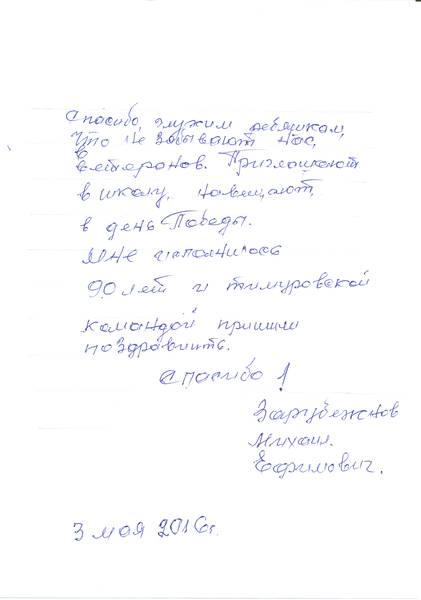 Спасибо, дружим ребяткам,
Что не забывают нас,
в
ветеронов. Приглашают
в школу, навещают,
в день Победы.
Мне исполнилось
90 лет и тимуровской
командой пришли
поздравить.
Спасибо!
Зарубежнов
Михаил.
Ефимович.
3 мая 2016г.